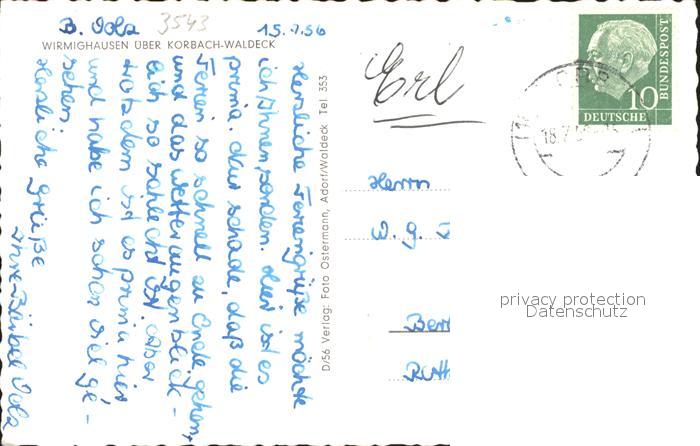 B. Volz 3543 15.7.56
WIRMIGHAUSEN ÜBER KORBACH-WALDECK
Herzliche Feriengrüße möchte
ich Ihnen senden. Hier ist es
prima. Nur schade, daß die
Ferien so schnell zu Ende gehen,
und das Wetter augenblick-
lich so schlecht ist. Aber
trotzdem ist es prima hier
und habe ich schon viel ge-
sehen.
Herzliche Grüße
Ihre Bärbel Volz
D/56 Verlag: Foto Ostermann, Adorf/Waldeck Tel 353
Erl
10
DEUTSCHE
BUNDESPOST
18.7
Herrn
W. G.
Ber
Ruth
privacy protection
Datenschutz